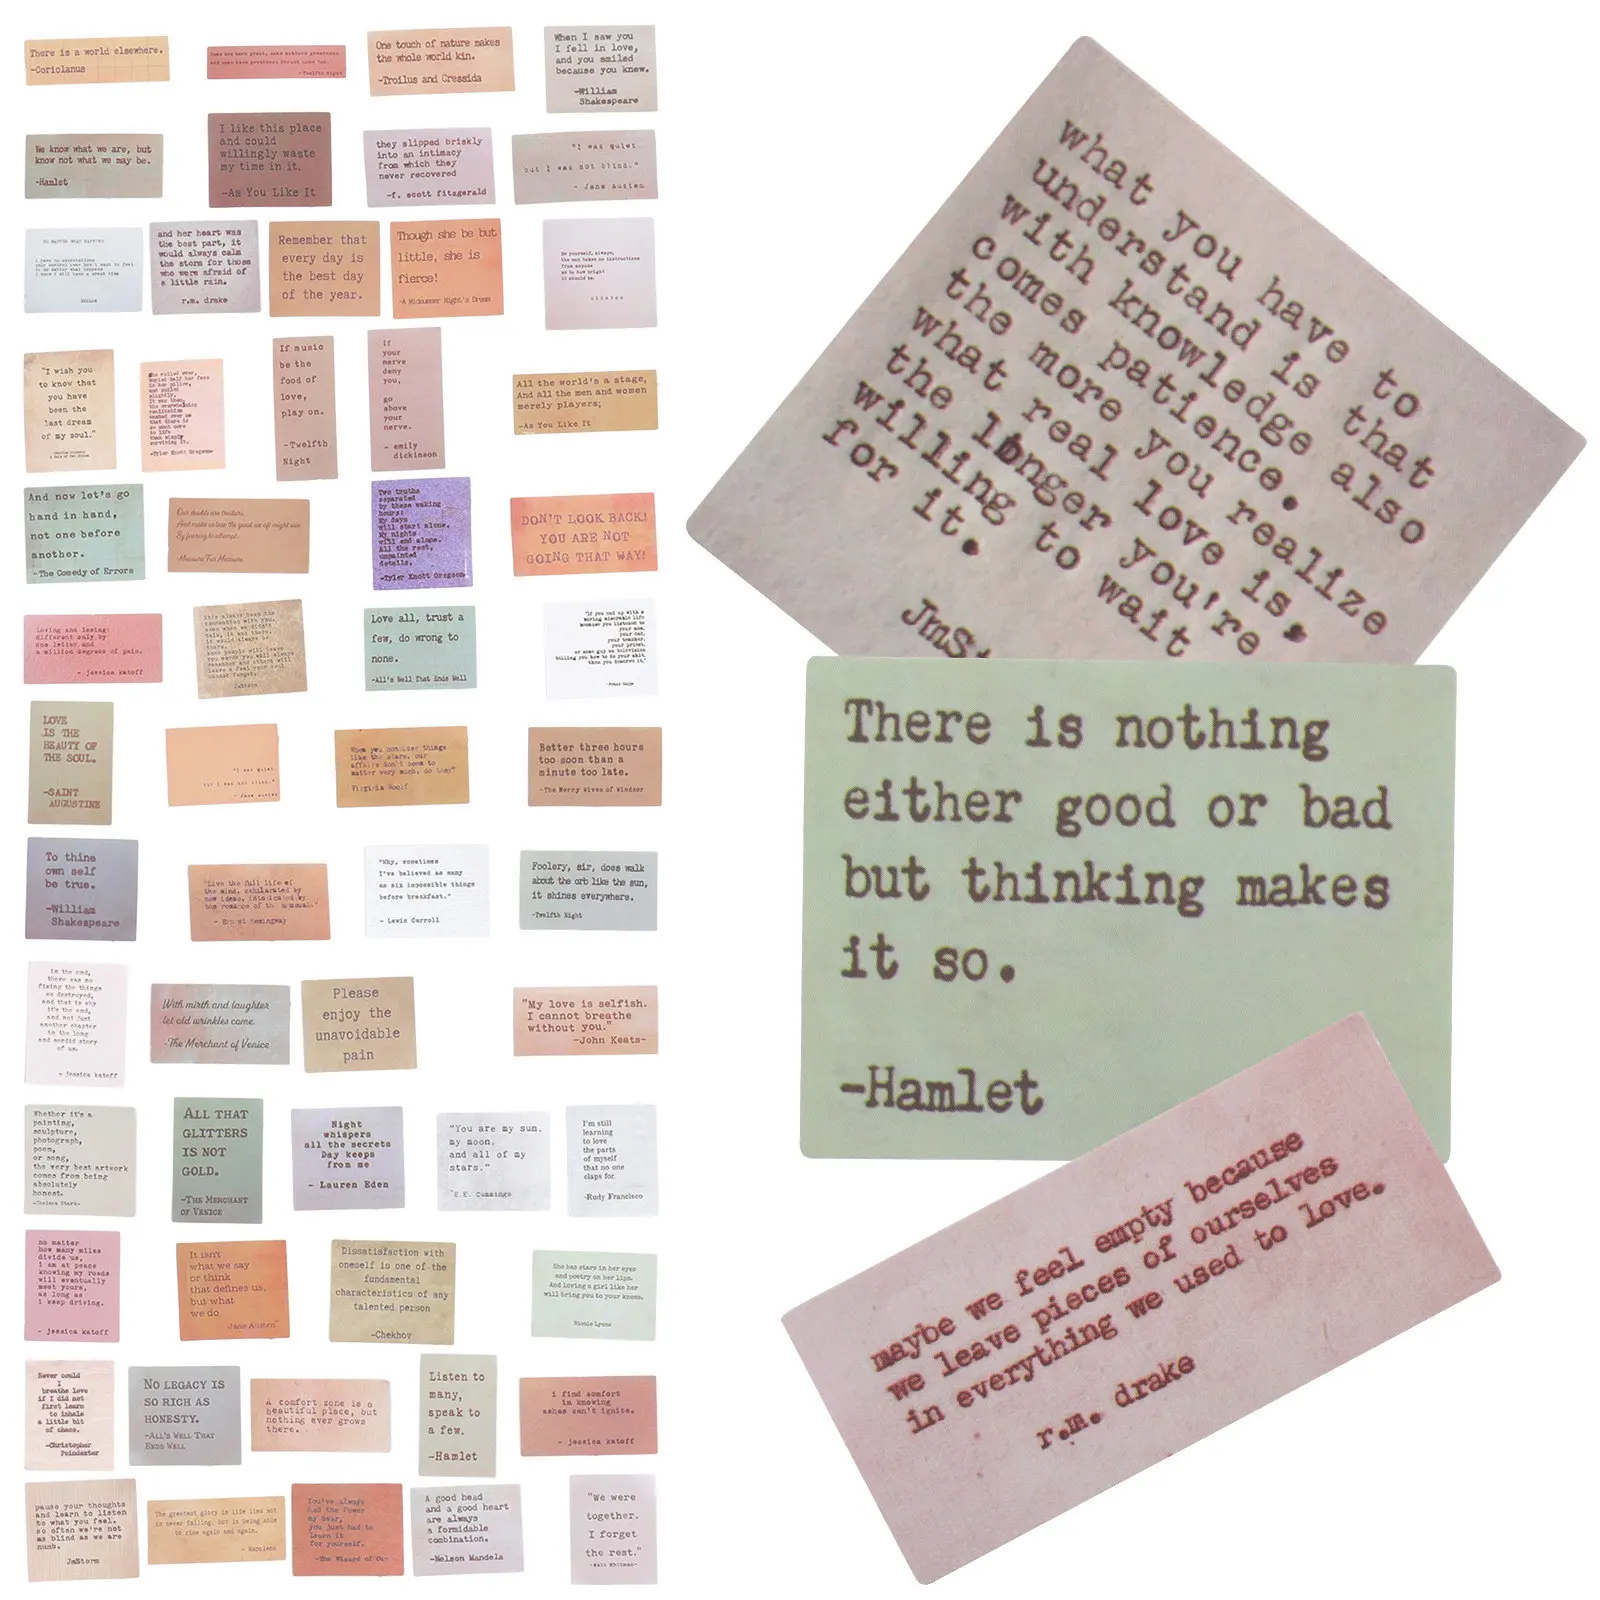 There is a world elsewhere.
-Coriolanus
Some are born great, some achieve greatness
and some have greatness thrust upon 'em.
-Twelfth Night
One touch of nature makes
the whole world kin.
-Troilus and Cressida
When I saw you
I fell in love,
and you smiled
because you knew.
-William
Shakespeare
We know what we are, but
know not what we may be.
-Hamlet
I like this place
and could
willingly waste
my time in it.
-As You Like It
they slipped briskly
into an intimacy
from which they
never recovered
-f. scott fitzgerald
"I was quiet,
but I was not blind."
- Jane Austen
NO MATTER WHAT HAPPENS
and her heart was
the best part, it
would always calm
the storm for those
who were afraid of
a little rain.
r.m. drake
Remember that
every day is
the best day
of the year.
Though she be but
little, she is
fierce!
-A Midsummer Night's Dream
Be yourself, always,
the sun takes no instructions
from anyone
as to how bright
it should be.
"I wish you
to know that
you have
been the
last dream
of my soul."
She rolled over,
buried half her face
in her pillow,
and smiled
slightly.
It was then,
the overwhelming
realization
washed over me
that there is
so much more
to life
than simply
surviving it.
-Tyler Knott Gregson-
If music
be the
food of
love,
play on.
-Twelfth
Night
If
your
nerve
deny
you,
go
above
your
nerve.
- emily
dickinson
All the world's a stage,
And all the men and women
merely players;
-As You Like It
And now let's go
hand in hand,
not one before
another.
-The Comedy of Errors
Our doubts are traitors,
And make us lose the good we oft might win
By fearing to attempt.
-Measure For Measure
Two truths
separated
by these waking
hours:
My days
will start alone.
My nights
will end alone.
All the rest,
unpainted
details.
-Tyler Knott Gregson-
DON'T LOOK BACK!
YOU ARE NOT
GOING THAT WAY!
Loving and losing:
different only by
one letter and
a million degrees of pain.
- jessica katoff
JmStorm
Love all, trust a
few, do wrong to
none.
-All's Well That Ends Well
"If you end up with a
boring miserable life
because you listened to
your mom,
your dad,
your teacher,
your priest,
or some guy on television
telling you how to do your shit,
then you deserve it."
-Frank Zappa
LOVE
IS THE
BEAUTY OF
THE SOUL.
-SAINT
AUGUSTINE
"I was quiet,
but I was not blind."
- Jane Austen
When you consider things
like the stars, our
affairs don't seem to
matter very much, do they?
Virginia Woolf
Better three hours
too soon than a
minute too late.
-The Merry Wives of Windsor
To thine
own self
be true.
-William
Shakespeare
"Live the full life of
the mind, exhilarated by
new ideas, intoxicated by
the romance of the unusual."
- Ernest Hemingway
"Why, sometimes
I've believed as many
as six impossible things
before breakfast."
- Lewis Carroll
Foolery, sir, does walk
about the orb like the sun,
it shines everywhere.
-Twelfth Night
in the end,
there was no
fixing the things
we destroyed,
and that is why
it's the end,
and not just
another chapter
in the long
and sordid story
of us.
- jessica katoff
With mirth and laughter
let old wrinkles come.
-The Merchant of Venice
Please
enjoy the
unavoidable
pain
"My love is selfish.
I cannot breathe
without you."
-John Keats-
Whether it's a
painting,
sculpture,
photograph,
poem,
or song,
the very best artwork
comes from being
absolutely
honest.
ALL THAT
GLITTERS
IS NOT
GOLD.
-THE MERCHANT
OF VENICE
Night
whispers
all the secrets
Day keeps
from me
- Lauren Eden
"You are my sun,
my moon,
and all of my
stars."
E.E. Cummings
I'm still
learning
to love
the parts
of myself
that no one
claps for.
-Rudy Francisco
no matter
how many miles
divide us,
i am at peace
knowing my roads
will eventually
meet yours,
as long as
i keep driving.
- jessica katoff
It isn't
what we say
or think
that defines us,
but what
we do.
Jane Austen
Dissatisfaction with
oneself is one of the
fundamental
characteristics of any
talented person
-Chekhov
She has stars in her eyes
and poetry on her lips.
And loving a girl like her
will bring you to your knees.
Nicole Lyons
Never could
I
breathe love
if I did not
first learn
to inhale
a little bit
of chaos.
-Christopher
Poindexter
NO LEGACY IS
SO RICH AS
HONESTY.
-ALL'S WELL THAT
ENDS WELL
A comfort zone is a
beautiful place, but
nothing ever grows
there.
Listen to
many,
speak to
a few.
-Hamlet
i find comfort
in knowing
ashes can't ignite.
- jessica katoff
pause your thoughts
and learn to listen
to what you feel.
so often we're not
as blind as we are
numb.
JmStorm
The greatest glory in life lies not
in never falling, but in being able
to rise again and again.
- Napoleon
You've always
had the Power
my dear,
you just had to
learn it
for yourself.
-The Wizard of Oz-
A good head
and a good heart
are always
a formidable
combination.
-Nelson Mandela
"We were
together.
I forget
the rest."
-Walt Whitman-
what you have to
understand is that
with knowledge also
comes patience.
the more you realize
what real love is,
the longer you're
willing to wait
for it.
JmSt
There is nothing
either good or bad
but thinking makes
it so.
-Hamlet
maybe we feel empty because
we leave pieces of ourselves
in everything we used to love.
r.m. drake